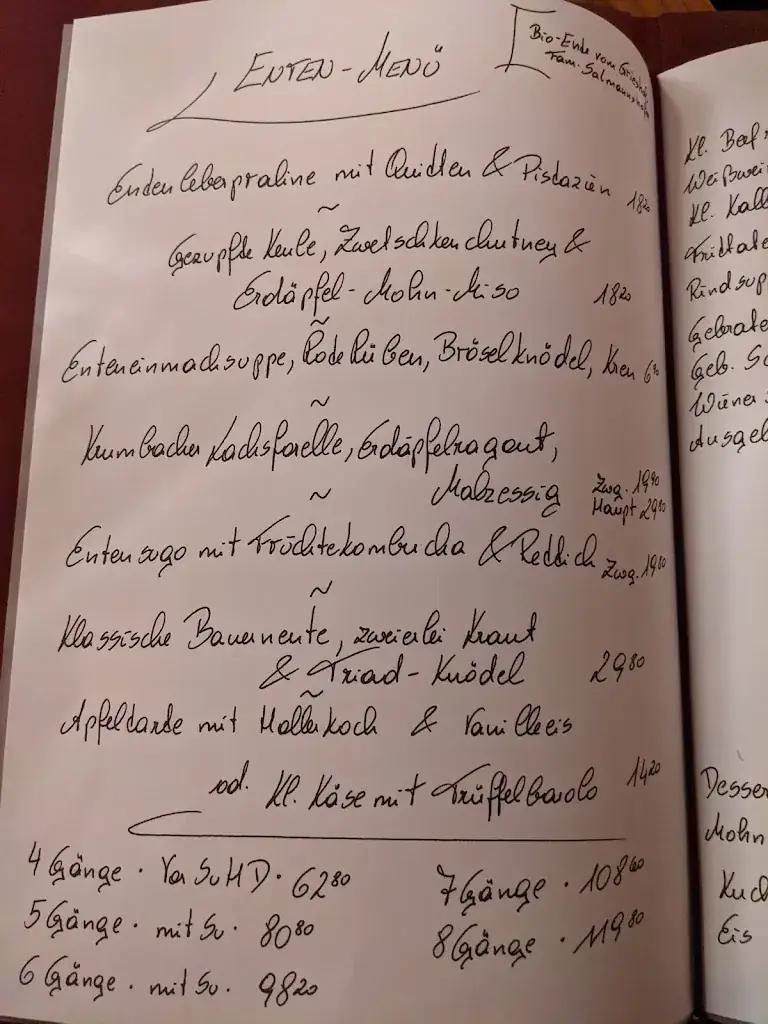 ENTEN-MENÜ
Bio-Ente vom
Fam. Salmannshofer
Entenleberpraline mit Quitten & Pistazien 18 20
~
Gezupfte Keule, Zwetschkenchutney &
Erdäpfel-Mohn-Miso 18 20
~
Enteneinmachsuppe, Rote Rüben, Bröselknödel, Kren 6
~
Krumbacher Lachsforelle, Erdäpfelragout,
Malzessig Zwg. 19 90
Haupt 29 80
~
Entensugo mit Früchtekombucha & Rettich Zwg. 19 80
~
Klassische Bauernente, zweierlei Kraut
& Triad-Knödel 29 80
~
Apfeltarte mit Hollerkoch & Vanilleeis
od. Kl. Käse mit Trüffelbarolo 14 20
4 Gänge · Vor Su H D · 62 80
5 Gänge · mit Su · 80 80
6 Gänge · mit Su · 98 20
7 Gänge · 108 60
8 Gänge · 119 80
Kl.
Weißwei
Kl.
Frittate
Rindsup
Gebrate
Geb.
Wiener
Ausgel
Desser
Mohn
Kuc
Eis